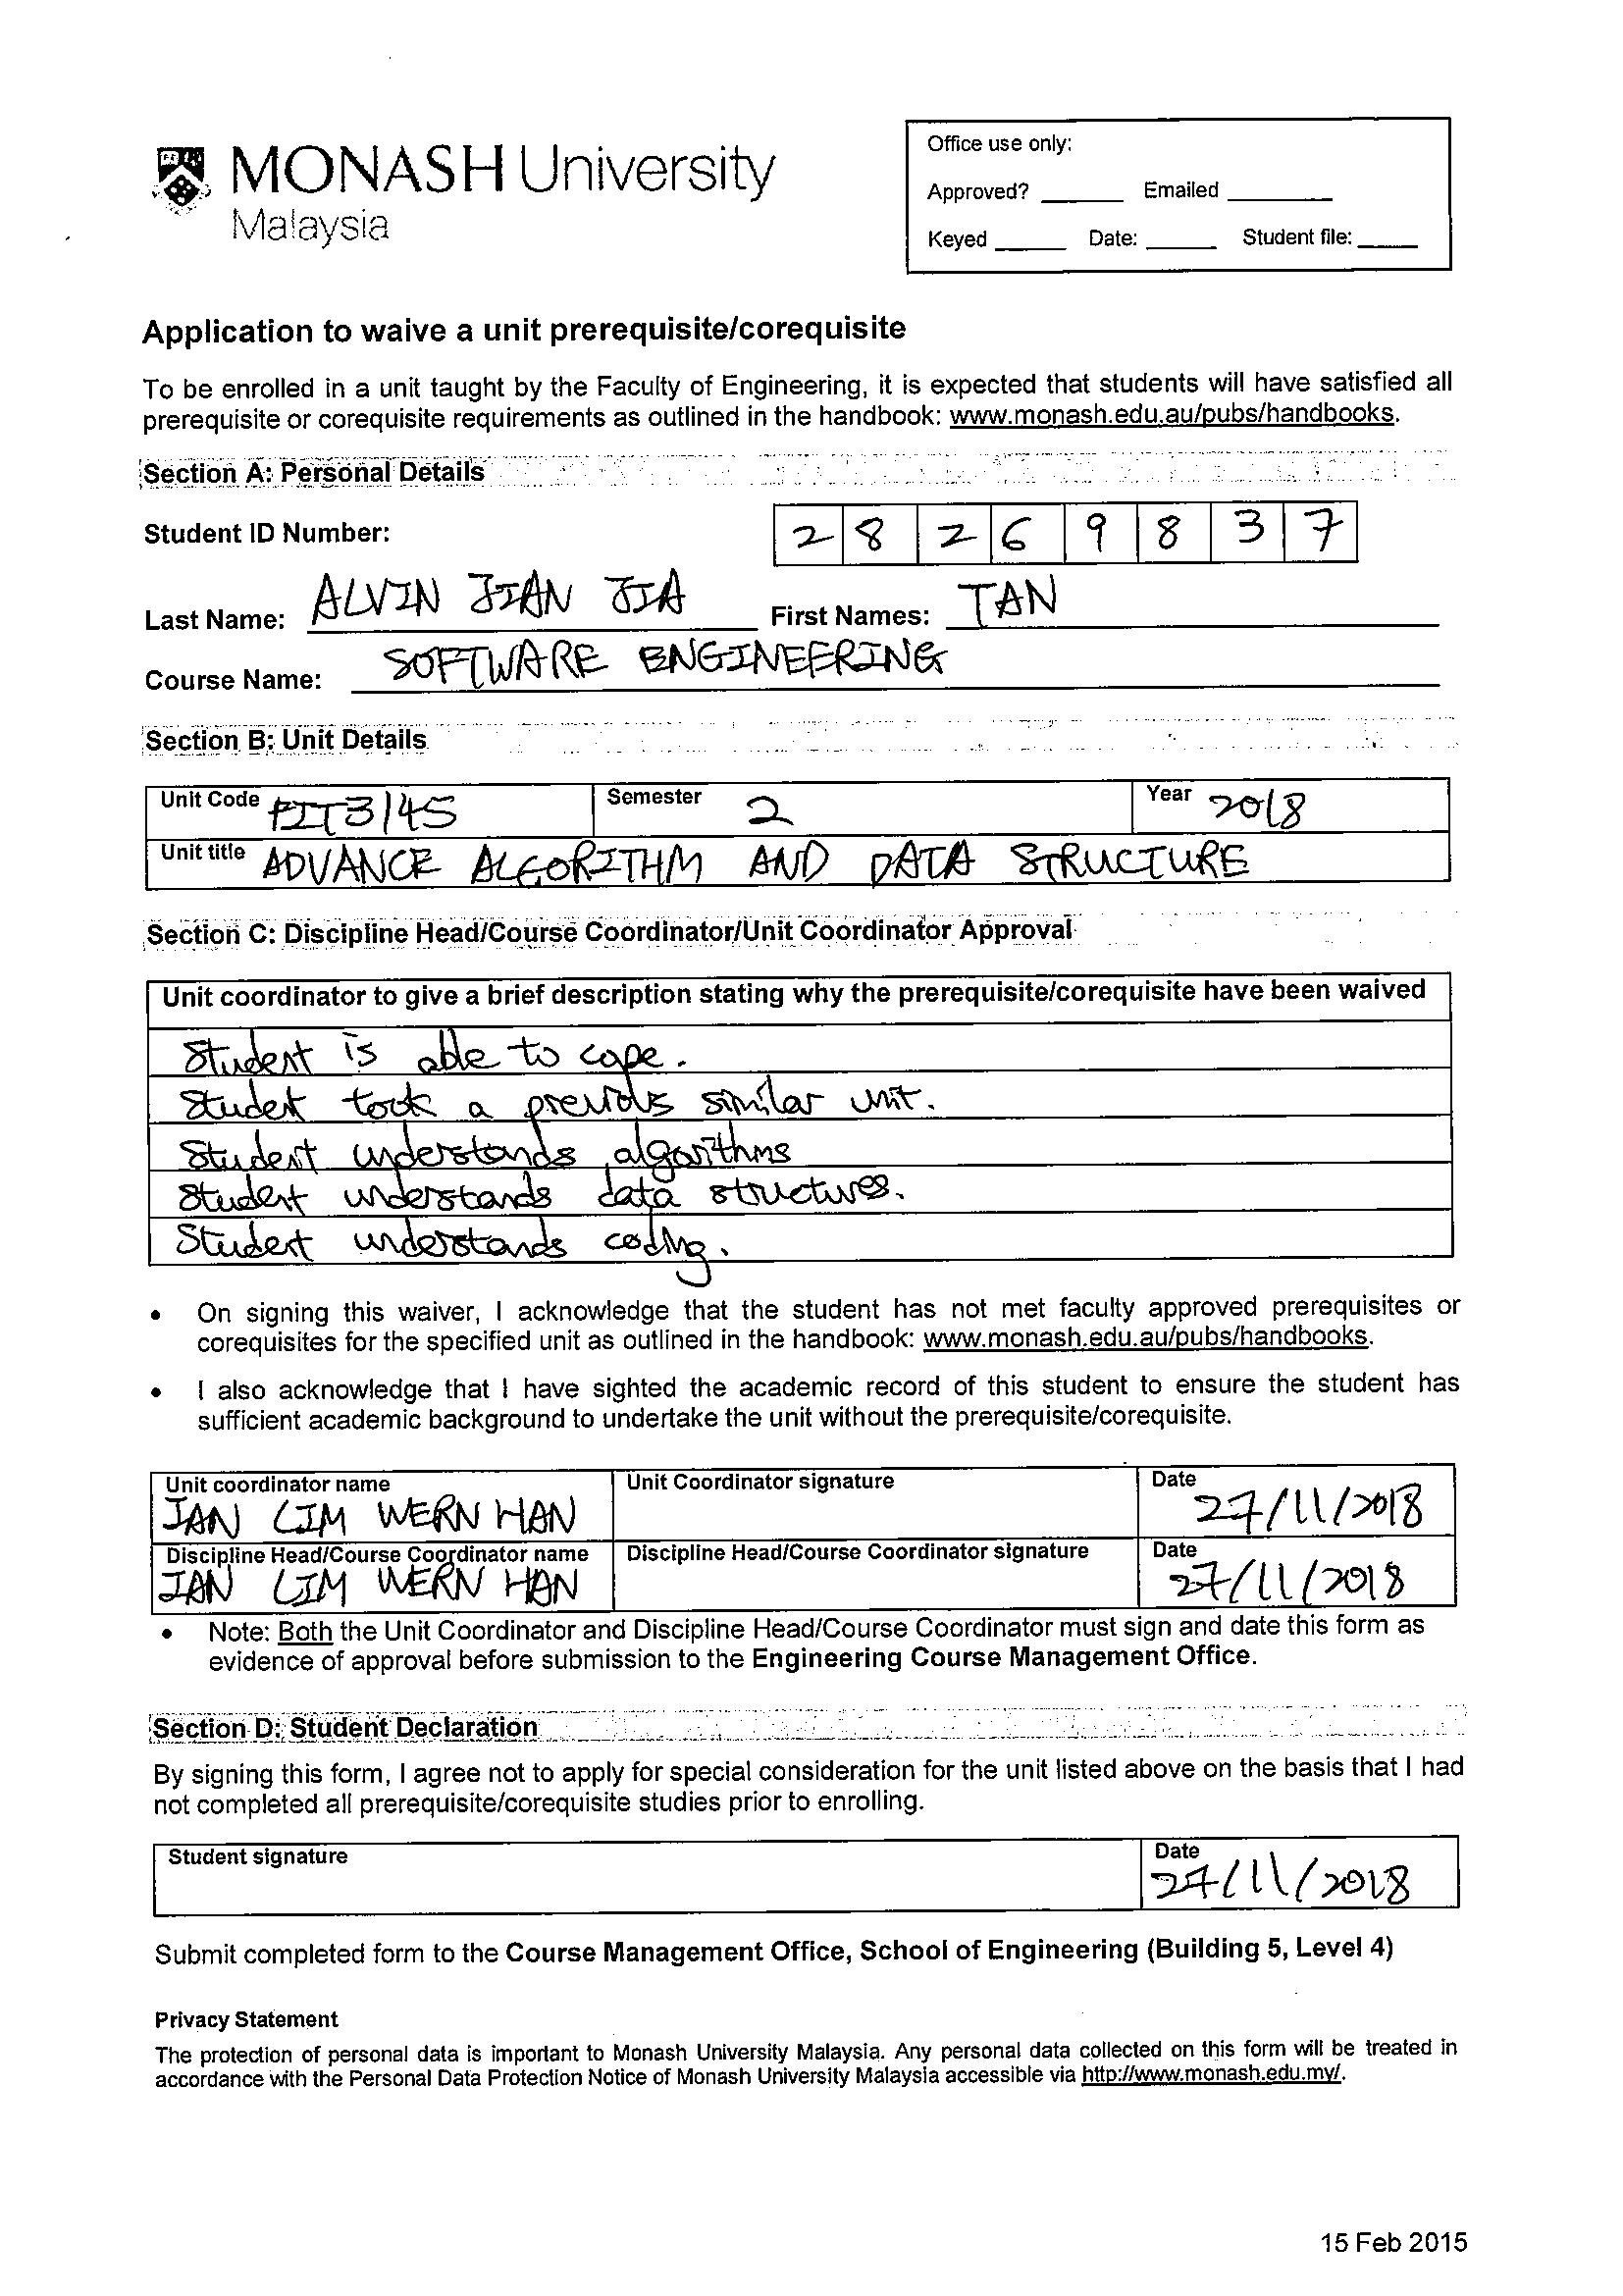 MONASH University
Malaysia
Office use only:
Approved? ______ Emailed ________
Keyed _____ Date: _____ Student file: _____
Application to waive a unit prerequisite/corequisite
To be enrolled in a unit taught by the Faculty of Engineering, it is expected that students will have satisfied all
prerequisite or corequisite requirements as outlined in the handbook: www.monash.edu.au/pubs/handbooks.
Section A: Personal Details
Student ID Number: 2 8 2 6 9 8 3 7
Last Name: ALVIN JIAN JIA First Names: TAN
Course Name: SOFTWARE ENGINEERING
Section B: Unit Details
Unit Code FIT3145 Semester 2 Year 2018
Unit title ADVANCE ALGORITHM AND DATA STRUCTURE
Section C: Discipline Head/Course Coordinator/Unit Coordinator Approval
Unit coordinator to give a brief description stating why the prerequisite/corequisite have been waived
Student is able to cope.
Student took a previous similar unit.
Student understands algorithms
Student understands data structures.
Student understands coding.
• On signing this waiver, I acknowledge that the student has not met faculty approved prerequisites or
corequisites for the specified unit as outlined in the handbook: www.monash.edu.au/pubs/handbooks.
• I also acknowledge that I have sighted the academic record of this student to ensure the student has
sufficient academic background to undertake the unit without the prerequisite/corequisite.
Unit coordinator name Unit Coordinator signature Date
IAN LIM WERN HAN 27/11/2018
Discipline Head/Course Coordinator name Discipline Head/Course Coordinator signature Date
IAN LIM WERN HAN 27/11/2018
• Note: Both the Unit Coordinator and Discipline Head/Course Coordinator must sign and date this form as
evidence of approval before submission to the Engineering Course Management Office.
Section D: Student Declaration
By signing this form, I agree not to apply for special consideration for the unit listed above on the basis that I had
not completed all prerequisite/corequisite studies prior to enrolling.
Student signature Date
27/11/2018
Submit completed form to the Course Management Office, School of Engineering (Building 5, Level 4)
Privacy Statement
The protection of personal data is important to Monash University Malaysia. Any personal data collected on this form will be treated in
accordance with the Personal Data Protection Notice of Monash University Malaysia accessible via http://www.monash.edu.my/.
15 Feb 2015